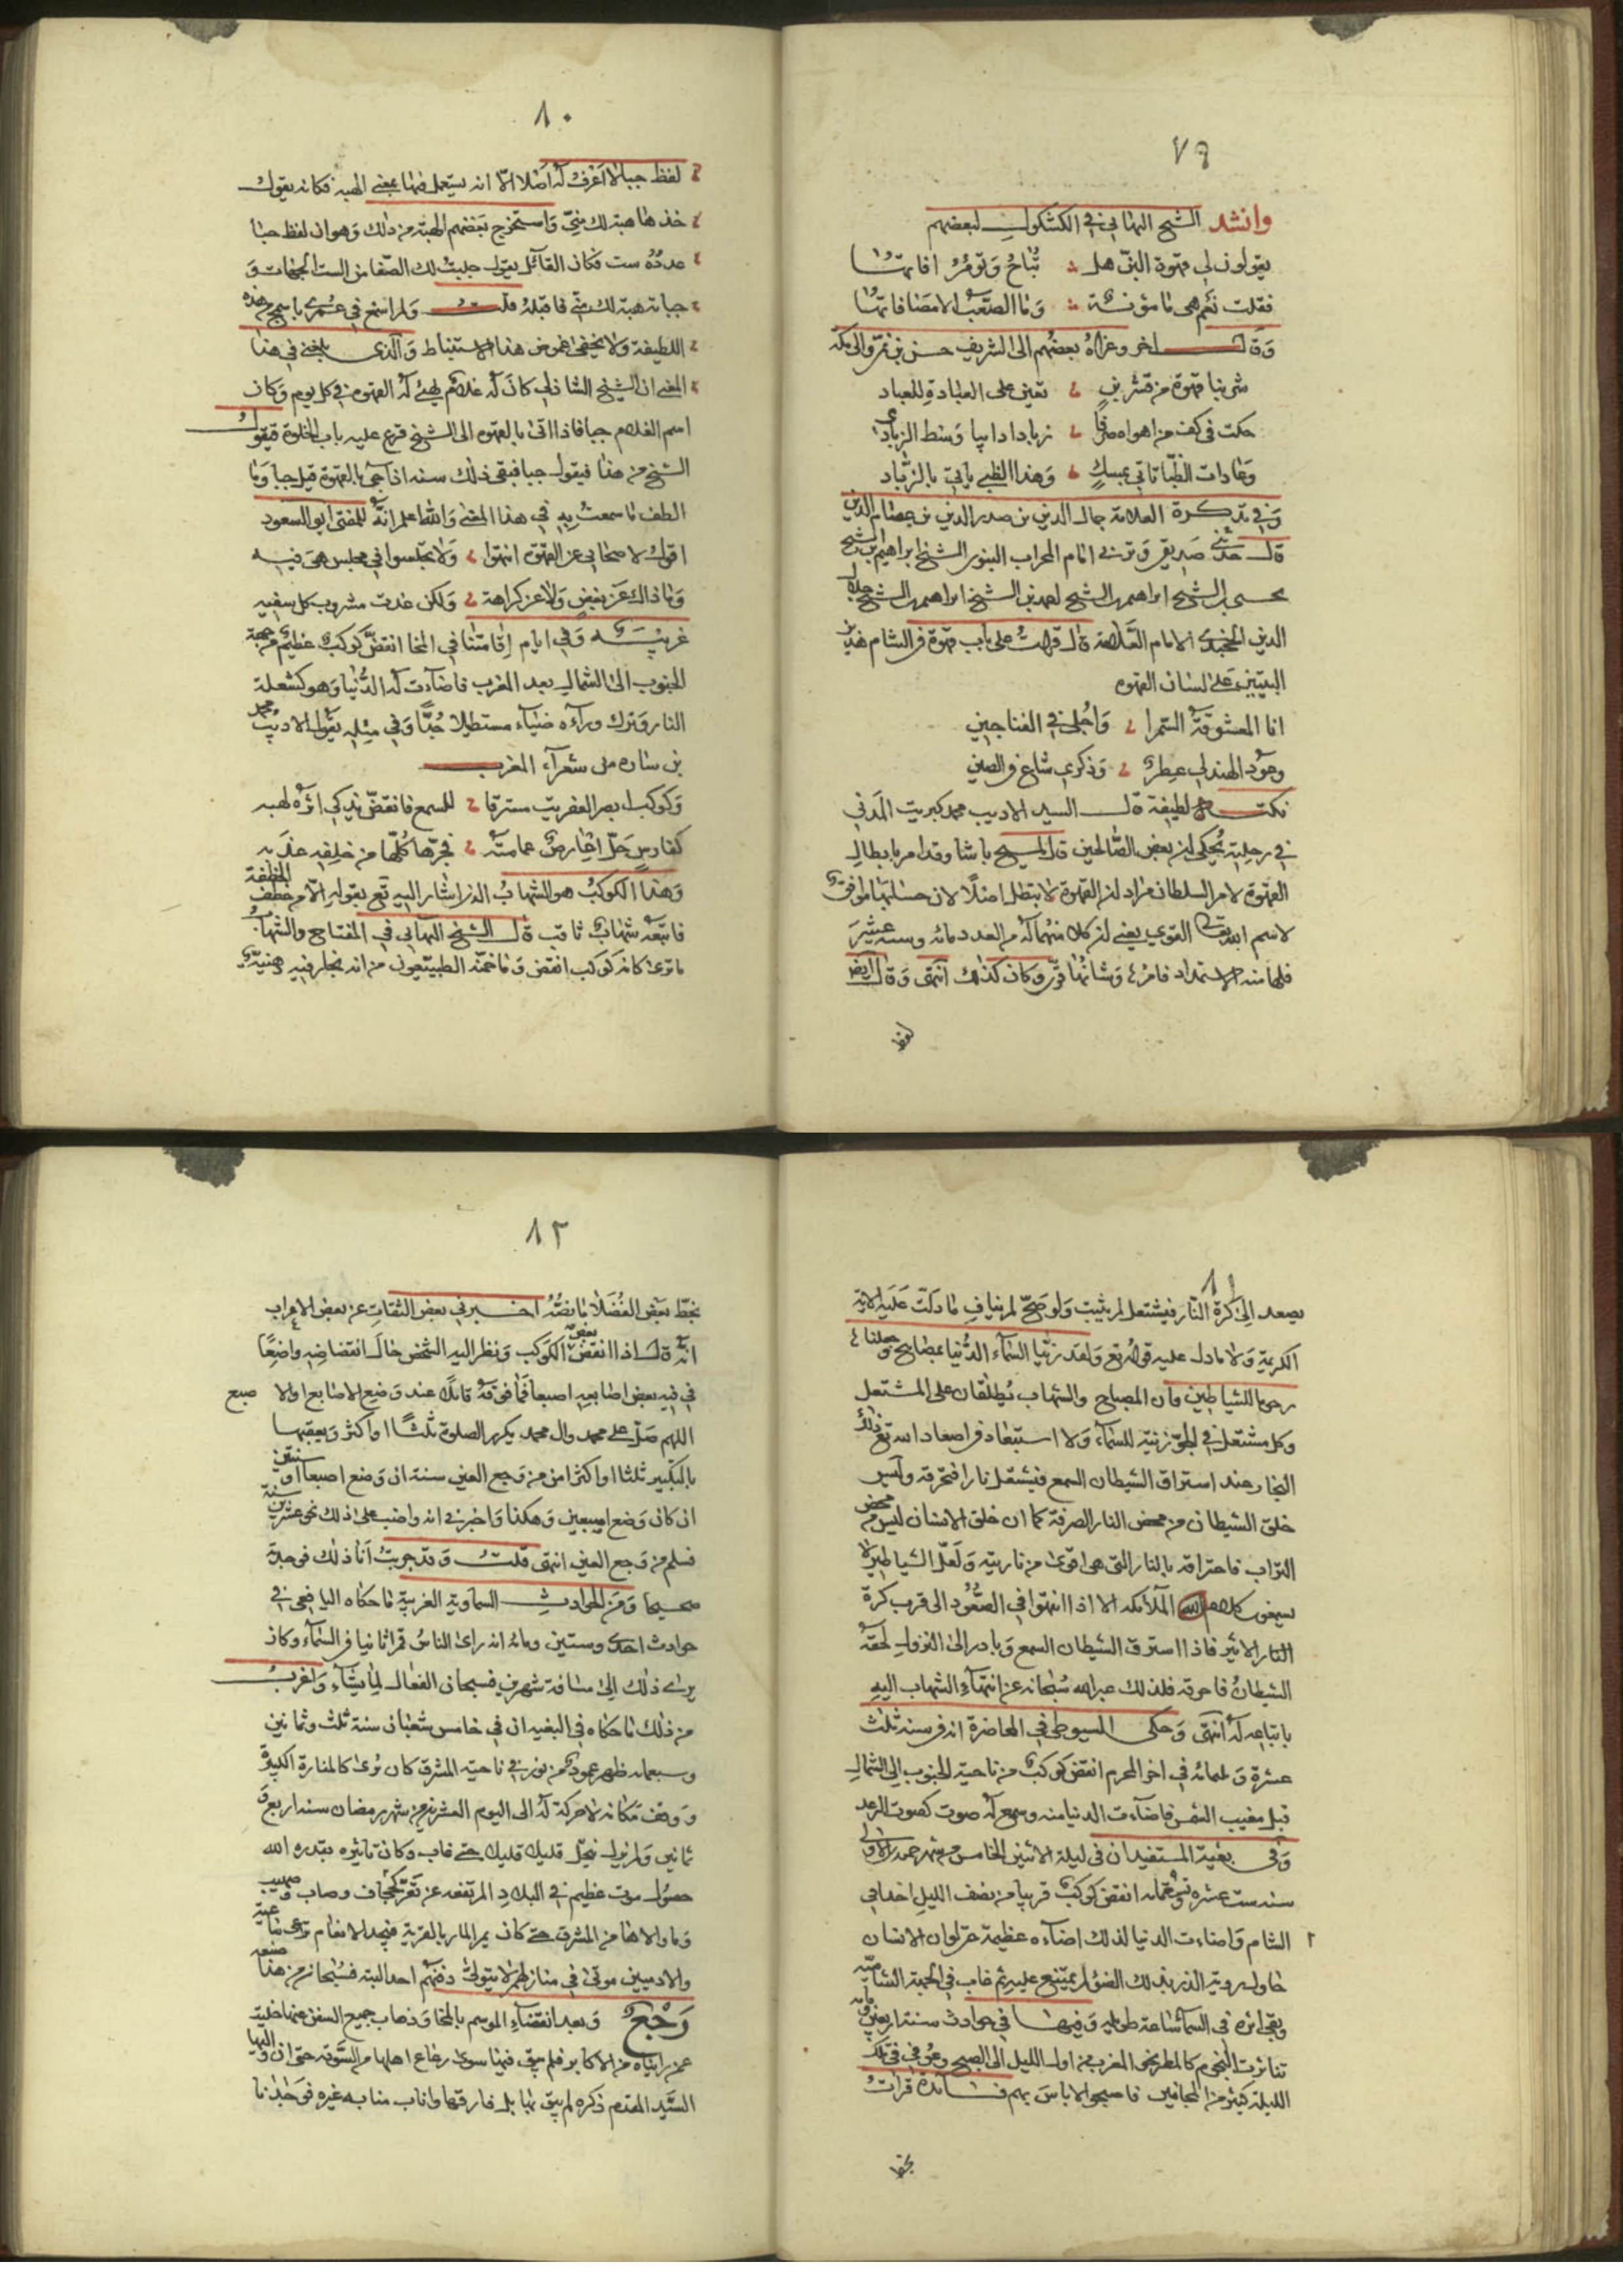 ٧٩
وانشد الشيخ البهائي في الكشكول لبعضهم
يقولون لي قهوة البن هل ؞ تباح وتؤمن افاتها
فقلت نعم هي مامؤنة ؞ وما الصعب الا مضافاتها
وقال اخر وعزاه بعضهم الى الشريف حسن بن نمي والي مكه
شربنا قهوة من قشر بن ؞ تعين على العبادة للعباد
حكت في كف من اهواه صرفا ؞ زبادا دايبا وسط الزبادي
وعادات الظبا تاتي بمسك ؞ وهذا الظبي ياتي بالزباد
وفي تذكرة العلامة جمال الدين بن صدر الدين بن عصام الدين
قال حدثني صديقي امام المحراب النبوي الشيخ ابراهيم بن الشيخ
الشيخ ابراهيم بن الشيخ احمد بن الشيخ ابراهيم بن الشيخ جلال
الدين الخجندي الامام العلامة قال قرات على باب قهوة في الشام هذين
البيتين على لسان القهوه
انا المعشوقة السمرا ؞ واجلى في الفناجين
وعود الهند لي عطر ؞ وذكري شاع في الصين
نكتة لطيفة قال السيد الاديب محمد كبريت المدني
في رحلته يحكى ان بعض الصالحين قال لمسيح باشا وقد امر بابطال
القهوة لامر السلطان مراد ان القهوة لا تبطل اصلا لان حسابها موافق
لاسم الله تعالى القوي يعني ان كلا منهما له من العدد مائه وستة عشر
فلها منه الاستمداد وشانها قوي وكان كذلك انتهى وقال ايضا
لفظ
٨٠
لفظ جبا لا اعرف له اصلا الا انه يستعمل فيها بمعنى الهبه فكانه يقول
خذها هبة لك مني واستخرج بعضهم الهبة من ذلك وهو ان لفظ جبا
عدده ست فكان القائل يقول جلبت لك الصفا من الست الجهات و
جباته هبة لك مني فاقبله قلت ولم اسمع في عمري باسمج من هذه
اللطيفة ولا يخفى غموض هذا الاستنباط والذي بلغني في هذا
المعنى ان الشيخ الشاذلي كان له غلام يهيئ له القهوه في كل يوم وكان
اسم الغلام جبا فاذا اتى بالقهوه الى الشيخ قرع عليه باب الخلوة فيقول
الشيخ من هذا فيقول جبا فبقي ذلك سنه اذا جي بالقهوة قيل جبا وما
الطف ما سمعت به في هذا المعنى والله اعلم انه للمفتي ابو السعود
اقول لاصحابي عن القهوة انتهوا ؞ ولا تجلسوا في مجلس هي فيه
وما ذاك عن بغض ولا عن كراهة ؞ ولكن غدت مشروب كل سفيه
غريبه وفي ايام اقامتنا في المخا انقض كوكب عظيم من جهة
الجنوب الى الشمال بعد المغرب فاضاءت له الدنيا وهو كشعلة
النار وترك وراءه ضياء مستطيلا جدا وفي مثله يقول الاديب محمد
بن ساره من شعراء المغرب
وكوكب ابصر العفريت مسترقا ؞ للسمع فانقض يذكي اثره لهبه
كفارس حل اعصار عمامته ؞ فجرها كلها من خلفه عذبه
وهذا الكوكب هو الشهاب الذي اشار اليه تع بقوله الا من خطف الخطفة
فاتبعه شهاب ثاقب قال الشيخ البهائي في المفتاح والشهاب
ما ترى كانه كوكب انقض وما خمنه الطبيعيون من انه بخار فيه دهنية
٨١
يصعد الى كرة النار فيشتعل لم يثبت ولو صح لم يناف ما دلت عليه الاية
الكريمة ولا ما دل عليه قوله تع ولقد زينا السماء الدنيا بمصابيح وجعلناها
رجوما للشياطين فان المصباح والشهاب يطلقان على المشتعل
وكل مشتعل في الجو زينة للسماء ولا استبعاد في اصعاد الله تع ذلك
البخار عند استراق الشيطان السمع فيشتعل نارا فتحرقه وليس
خلق الشيطان من محض النار الصرفة كما ان خلق الانسان ليس من محض
التراب فاحتراقه بالنار التي هي اقوى من ناريته ولعل الشياطين لا
يسمعون كلام الملائكه الا اذا انتهوا في الصعود الى قرب كرة
النار الاثير فاذا استرق الشيطان السمع وبادر الى النزول لحقه
الشيطان فاحرقه فلذلك عبر الله سبحانه عن انتهاء الشهاب اليه
باتباعه له انتهى وحكى السيوطي في المحاضرة انه في سنة ثلث
عشرة وثلثمائه في اخر المحرم انقض كوكب من ناحية الجنوب الى الشمال
قبل مغيب الشمس فاضاءت الدنيا منه وسمع له صوت كصوت الرعد
وفي بغية المستفيد ان في ليلة الاثنين الخامس من شهر جمادى الاولى
سنه ست عشره وتسعمائه انقض كوكب قريبا من نصف الليل اخذ في
الشام واضاءت الدنيا لذلك اضاءه عظيمة حتى لو ان الانسان
حاول رؤية الذر بذلك الضوء لم يمتنع عليه ثم غاب في الجهة الشامية
وبقي اثره في السماء ساعة طويله وفيها في حوادث سنة اربعين
تناثرت النجوم كالمطر نحو المغرب من اول الليل الى الصبح وعوفي في تلك
الليلة كثير من المجانين فاصبحوا لا باس بهم فائدة قرات
بخط
٨٢
بخط بعض الفضلا ما نصه اخبرني بعض الثقات عن بعض الاعراب
انه قال اذا انقض بعض الكوكب ونظر اليه الشخص حال انقضاضه واضعا
في فيه بعض اصابعه اصبعا فما فوقه قائلا عند وضع الاصابع اولا
اللهم صل على محمد وال محمد يكرر الصلوة ثلثا او اكثر ويعقبها
بالتكبير ثلثا او اكثر امن من وجع العين سنة ان وضع اصبعا او سنتين
ان كان وضع اصبعين وهكذا واخبرني انه واظب على ذلك نحو عشرين سنة
فسلم من وجع العين انتهى قلت وقد جربت انا ذلك فوجدته
صحيحا ومن الحوادث السماوية الغريبة ما حكاه اليافعي في
حوادث احدى وستين ومائه انه راى الناس قمرا ثانيا في السماء وكان
يرى ذلك الى مسافة شهرين فسبحان الفعال لما يشاء واغرب
من ذلك ما حكاه في البغية ان في خامس شعبان سنة ثلث وثمانين
وسبعمائه ظهر عمود من نور في ناحية المشرق كان يرى كالمنارة الكبيرة
ووقف مكانه لا حركة له الى اليوم العشرين من شهر رمضان سنه اربع و
ثمانين ولم يزل ينحل قليلا قليلا حتى غاب وكان تاثيره بقدره الله
حصول موت عظيم في البلاد المرتفعه عن تعز كحجاف وصاب
وما والاها من المشرق حتى كان يمر المار بالقرية فيجد الانعام
والادميين موتى في منازلهم لا يتولى دفنهم احد البتة فسبحانه من هذا صنعه
رجع وبعد انقضاء الموسم بالمخا وذهاب جميع السفن عنها خلية
عمن راياه من الاكابر فلم يبق فيها سوى رعاع اهلها من السوقه حتى ان واليها
السيد المقدم ذكره لم يبق بها بل فارقها واناب منابه غيره